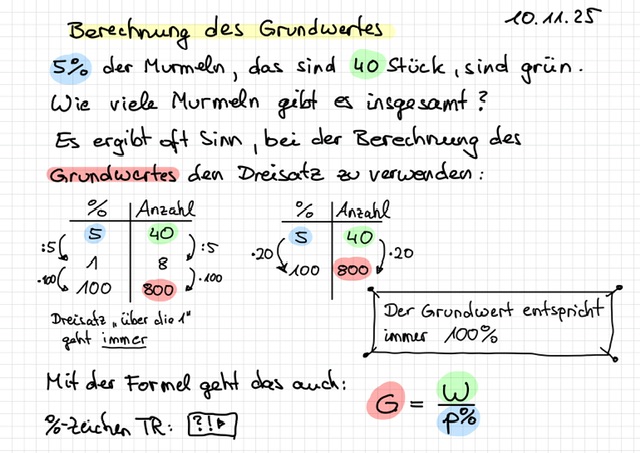 Berechnung des Grundwertes 10.11.25
5% der Murmeln, das sind 40 Stück, sind grün.
Wie viele Murmeln gibt es insgesamt?
Es ergibt oft Sinn, bei der Berechnung des
Grundwertes den Dreisatz zu verwenden:
% Anzahl % Anzahl
5 40 5 40
:5 1 8 :5 ·20 100 800 ·20
·100 100 800 ·100
Dreisatz „über die 1"
geht immer
Der Grundwert entspricht
immer 100%
Mit der Formel geht das auch:
G = W / p%
%-zeichen TR: ?!▶